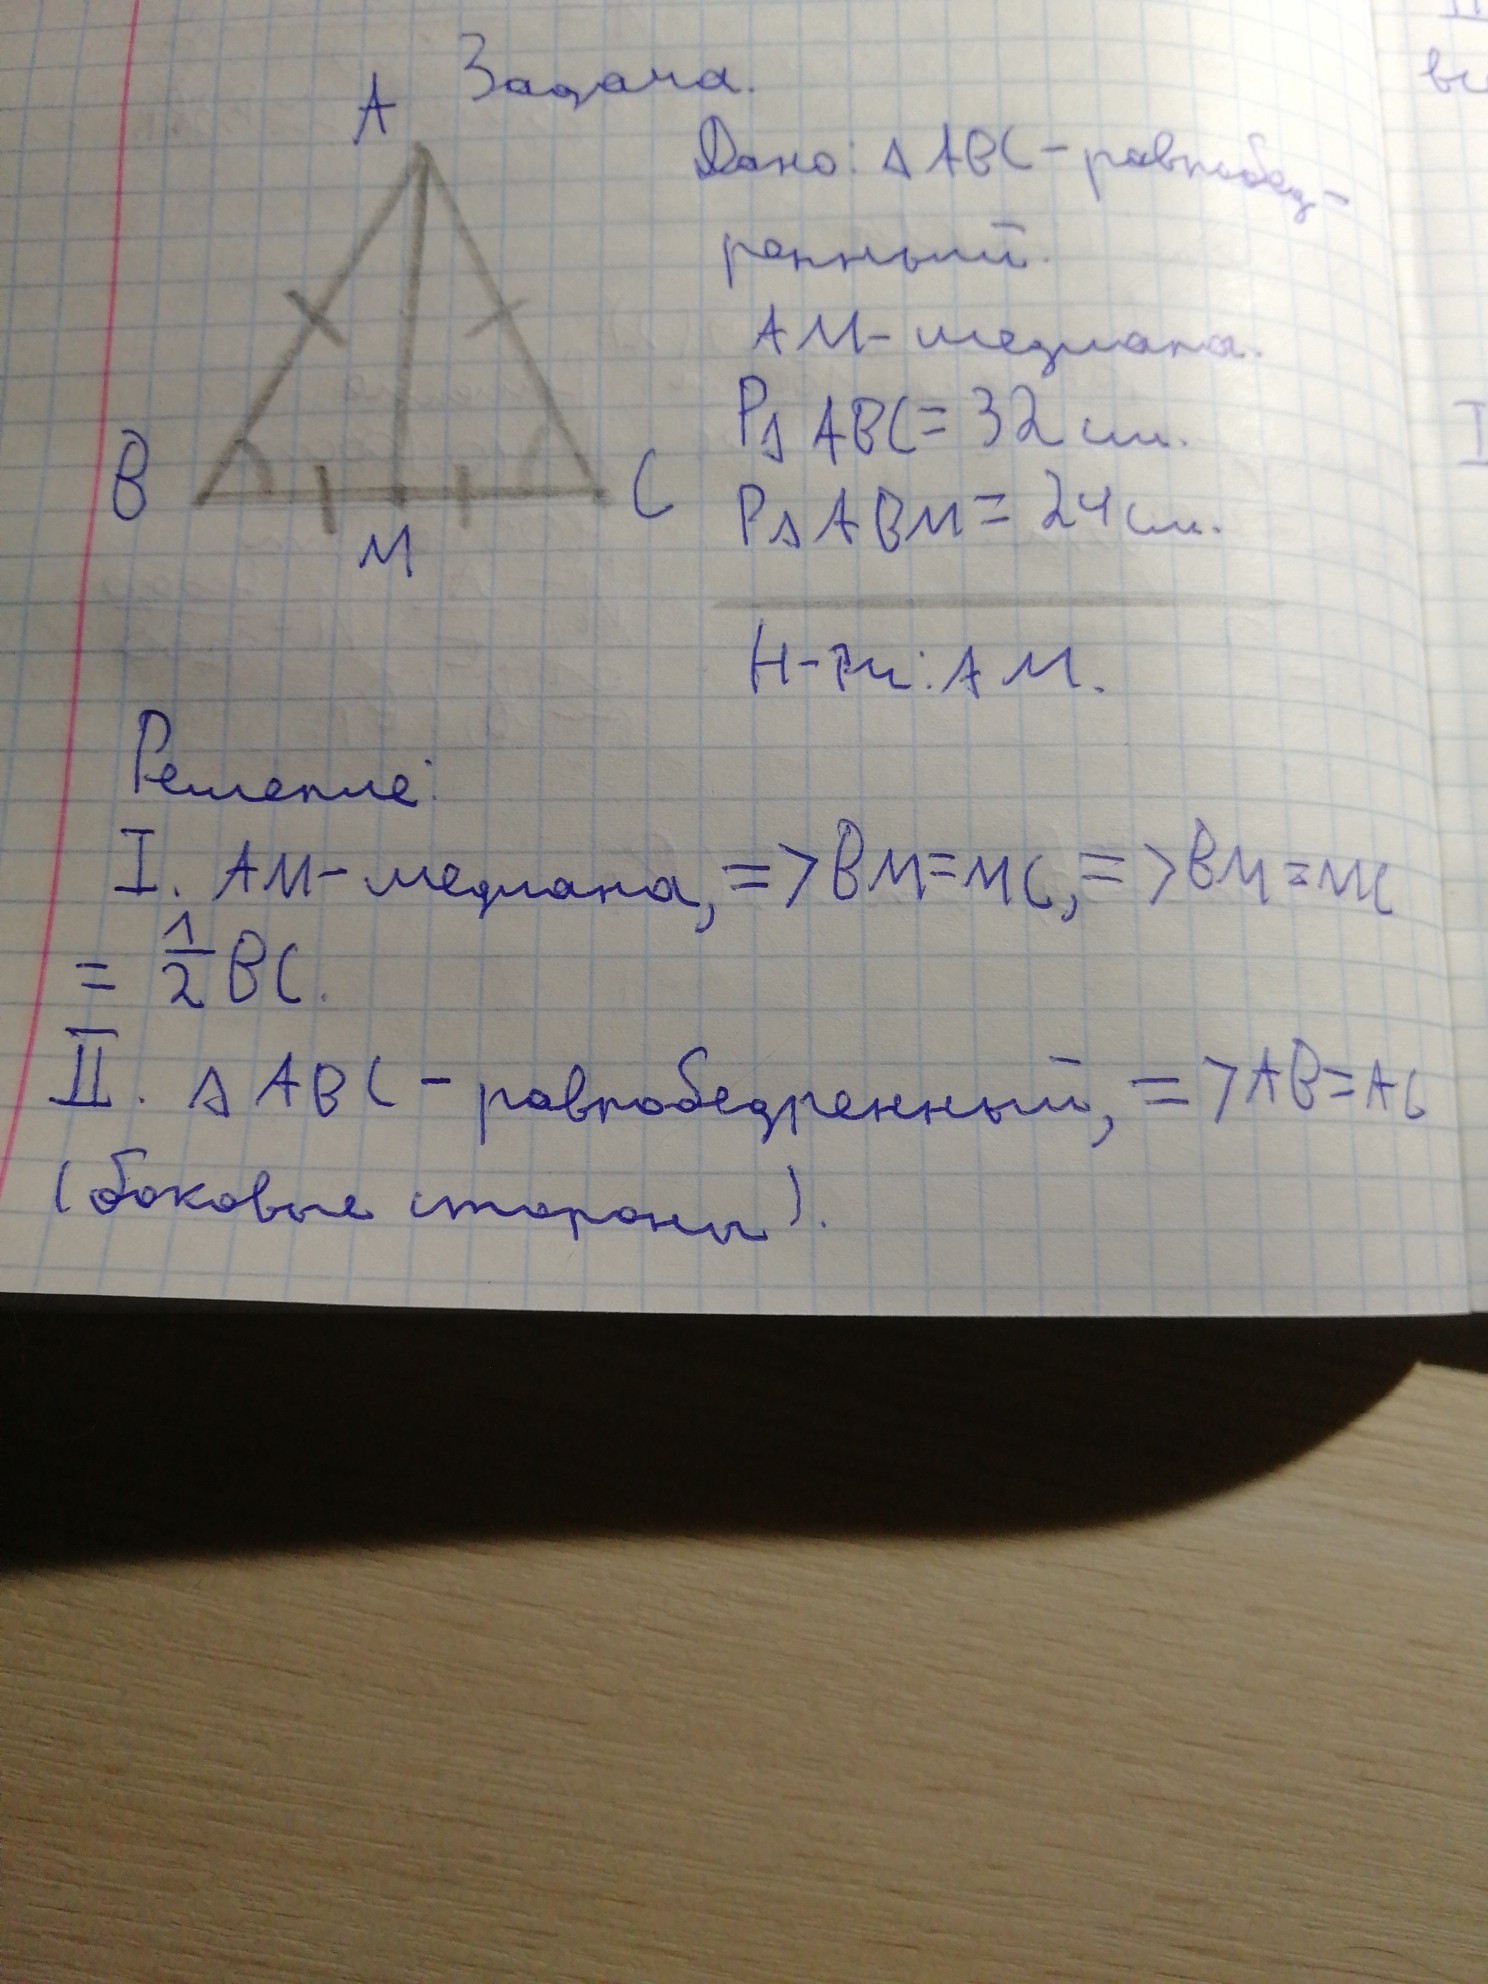 Задача.
A
Дано: △ ABC - равнобед-
ренный.
AM - медиана.
P△ ABC = 32 см.
P△ ABM = 24 см.
B
C
M
Н-ти: AM.
Решение:
I. AM - медиана, => BM = MC, => BM = MC
= 1/2 BC.
II. △ ABC - равнобедренный, => AB = AC
(боковые стороны).